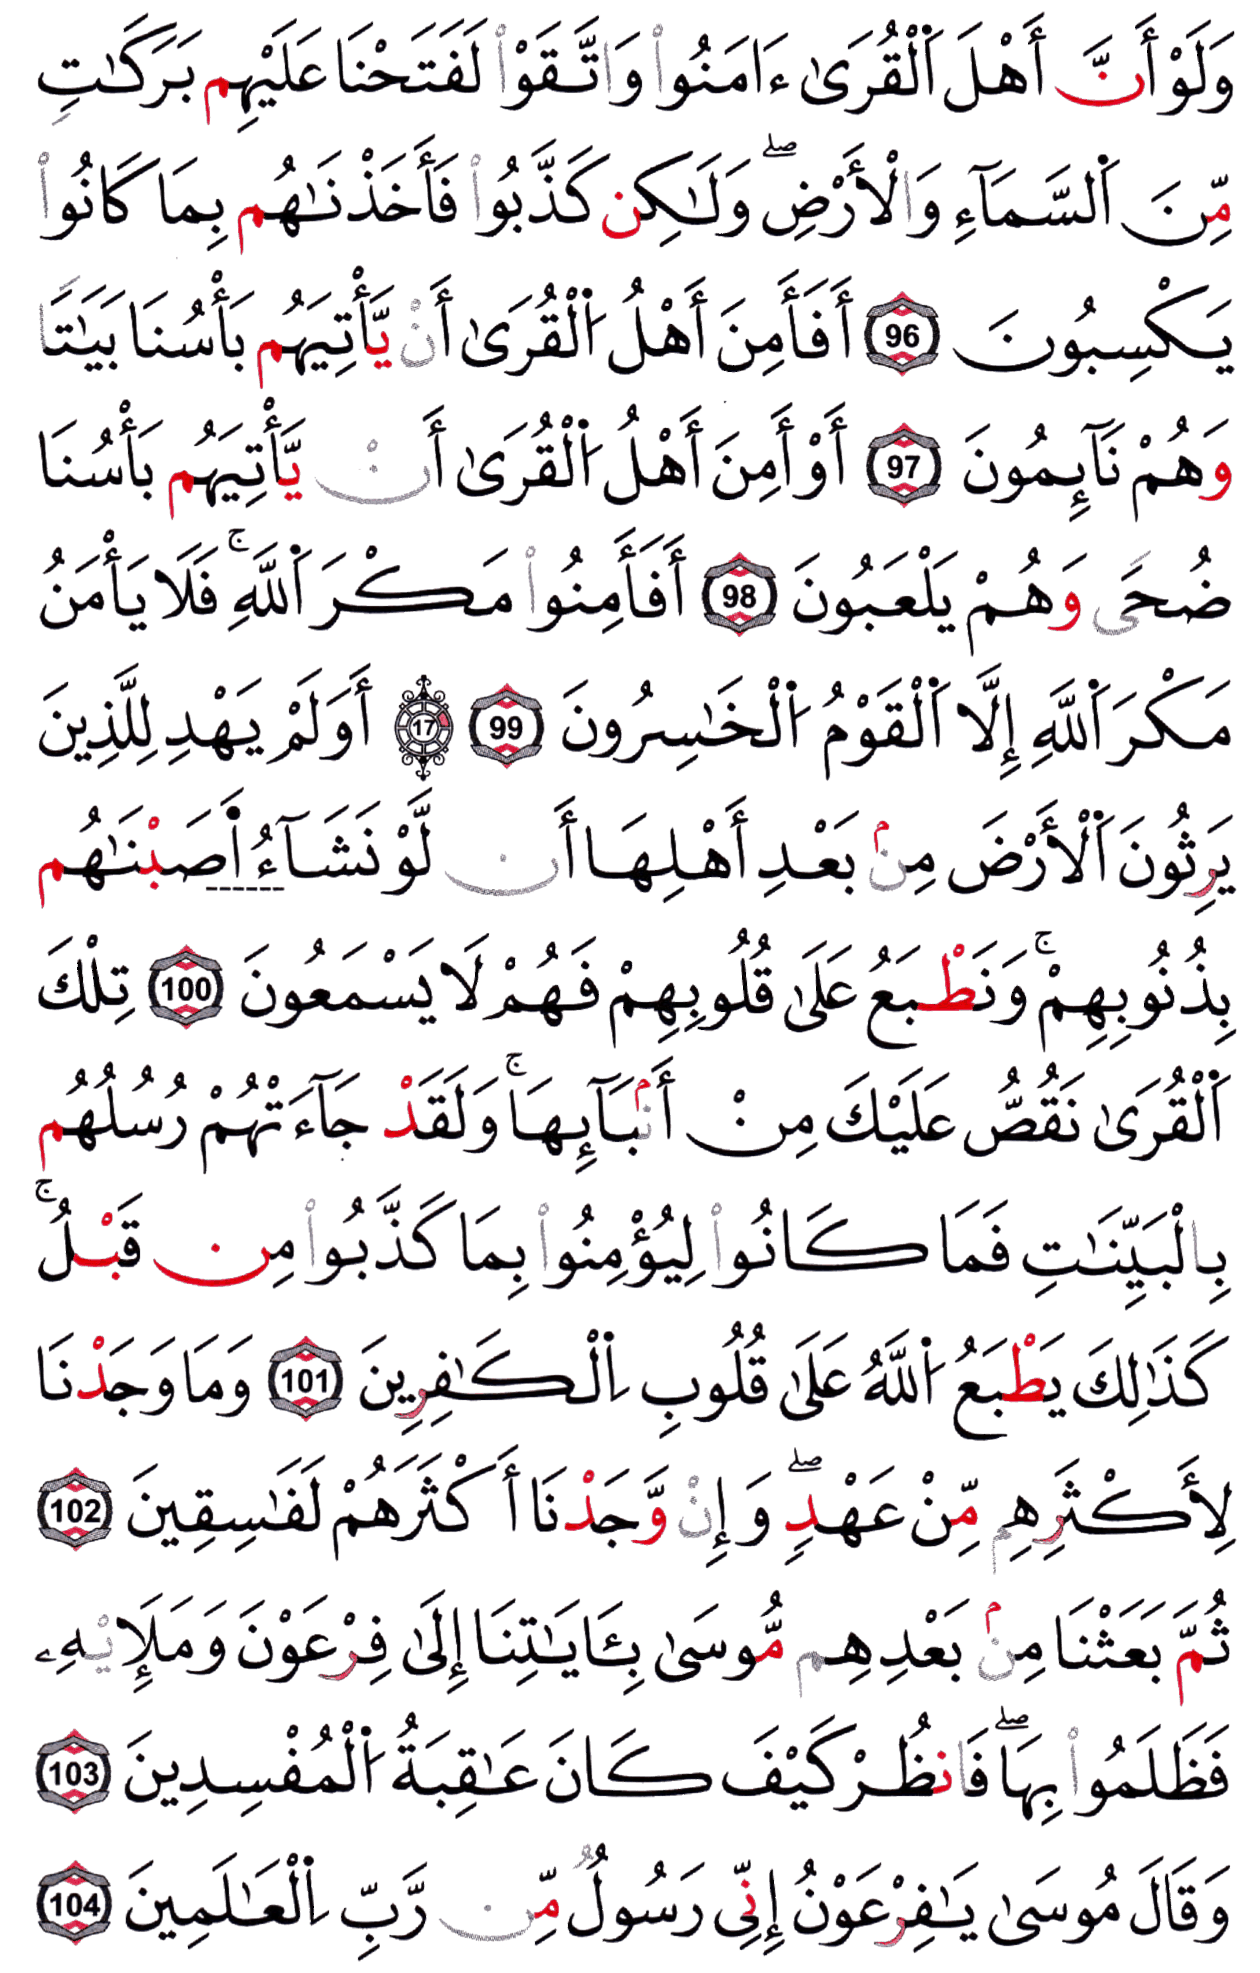 وَلَوْ أَنَّ أَهْلَ اَ۬لْقُرَىٰ ءَامَنُواْ وَاتَّقَوْاْ لَفَتَحْنَا عَلَيْهِم بَرَكَٰتٍ
مِّنَ اَ۬لسَّمَآءِ وَالْأَرْضِۖ وَلَٰكِن كَذَّبُواْ فَأَخَذْنَٰهُم بِمَا كَانُواْ
يَكْسِبُونَ 96 أَفَأَمِنَ أَهْلُ اُ۬لْقُرَىٰ أَنْ يَّأْتِيَهُم بَأْسُنَا بَيَٰتًا
وَهُمْ نَآئِمُونَ 97 أَوْ أَمِنَ أَهْلُ اُ۬لْقُرَىٰ أَنْ يَّأْتِيَهُم بَأْسُنَا
ضُحًى وَهُمْ يَلْعَبُونَ 98 أَفَأَمِنُواْ مَكْرَ اَ۬للَّهِۚ فَلَا يَأْمَنُ
مَكْرَ اَ۬للَّهِ إِلَّا اَ۬لْقَوْمُ اُ۬لْخَٰسِرُونَ 99 17 أَوَلَمْ يَهْدِ لِلَّذِينَ
يَرِثُونَ اَ۬لْأَرْضَ مِنۢ بَعْدِ أَهْلِهَا أَن لَّوْ نَشَآءُ اَ۬صَبْنَٰهُم
بِذُنُوبِهِمْۚ وَنَطْبَعُ عَلَىٰ قُلُوبِهِمْ فَهُمْ لَا يَسْمَعُونَ 100 تِلْكَ
اَ۬لْقُرَىٰ نَقُصُّ عَلَيْكَ مِنْ أَنۢبَآئِهَاۚ وَلَقَدْ جَآءَتْهُمْ رُسُلُهُم
بِالْبَيِّنَٰتِ فَمَا كَانُواْ لِيُؤْمِنُواْ بِمَا كَذَّبُواْ مِن قَبْلُۚ
كَذَٰلِكَ يَطْبَعُ اُ۬للَّهُ عَلَىٰ قُلُوبِ اِ۬لْكَٰفِرِينَ 101 وَمَا وَجَدْنَا
لِأَكْثَرِهِم مِّنْ عَهْدٍۖ وَإِنْ وَّجَدْنَا أَكْثَرَهُمْ لَفَٰسِقِينَ 102
ثُمَّ بَعَثْنَا مِنۢ بَعْدِهِم مُّوسَىٰ بِـَٔايَٰتِنَا إِلَىٰ فِرْعَوْنَ وَمَلَإِيْهِۦ
فَظَلَمُواْ بِهَاۖ فَانظُرْ كَيْفَ كَانَ عَٰقِبَةُ اُ۬لْمُفْسِدِينَ 103
وَقَالَ مُوسَىٰ يَٰفِرْعَوْنُ إِنِّي رَسُولٌ مِّن رَّبِّ اِ۬لْعَٰلَمِينَ 104